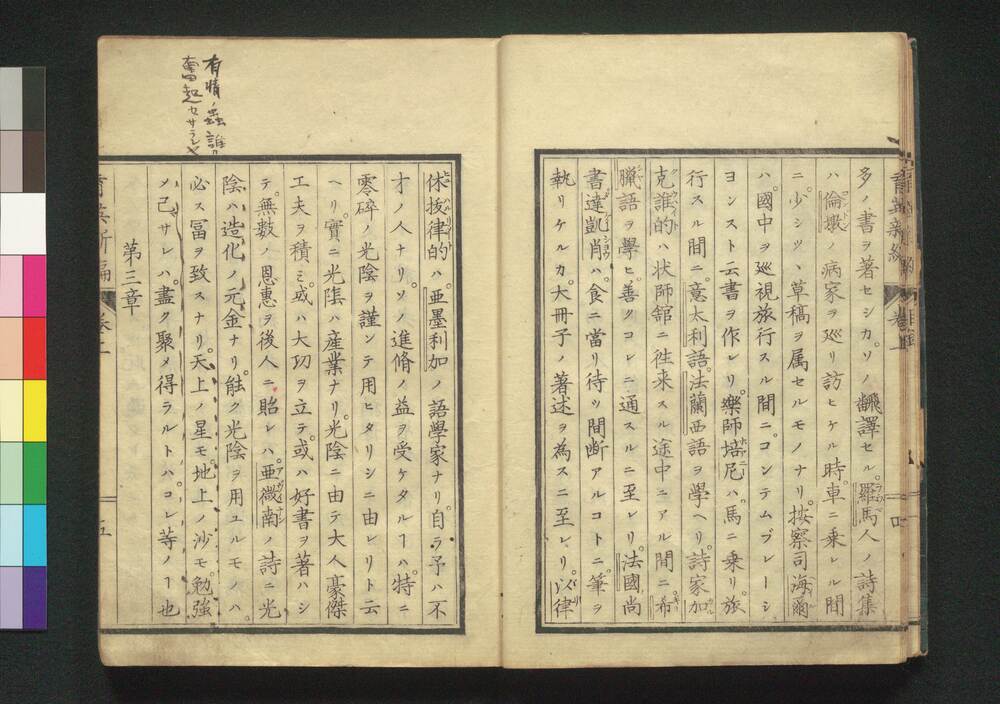 多ノ書ヲ著セシカ。ソノ飜譯セル。羅馬人ノ詩集
ハ。倫墩ノ病家ヲ巡リ訪ヒケル時。車ニ乗レル間
ニ。少シツヽ草稿ヲ属セルモノナリ。按察司海爾
ハ。國中ヲ巡視旅行スル間ニ。コンテムプレーシ
ヨンスト云書ヲ作レリ。樂師培尼ハ。馬ニ乗リ。旅
行スル間ニ。意太利語。法蘭西語ヲ學ヘリ。詩家加
克誰的ハ。状師舘ニ徃来スル途中ニアル間ニ。希
臘語ヲ學ヒ。善クコレニ通スルニ至レリ。法國尚
書達凱肖ハ。食ニ當リ待ツ間断アルコトニ筆ヲ
執リケルカ。大冊子ノ著述ヲ為スニ至レリ。律
休抜律的ハ。亜墨利加ノ語學家ナリ。自ラ予ハ不
才ノ人ナリ。ソノ進脩ノ益ヲ受ケタルヿハ。特ニ
零碎ノ光陰ヲ謹ンテ用ヒタリシニ由レリト云
ヘリ。實ニ光陰ハ産業ナリ。光陰ニ由テ大人豪傑
工夫ヲ積ミ。或ハ大功ヲ立テ。或ハ好書ヲ著ハシ
テ。無數ノ恩惠ヲ後人ニ貽レハ。亜微南ノ詩ニ光
陰ハ造化ノ元金ナリ。能ク光陰ヲ用ユルモノハ。
必ス冨ヲ致スナリ。天上ノ星モ。地上ノ沙モ。勉強
メ已サレハ。盡ク聚メ得ラルトハ。コレ等ノヿ也
第三章
五
有情ノ蟲誰カ
奮起セサランヤ